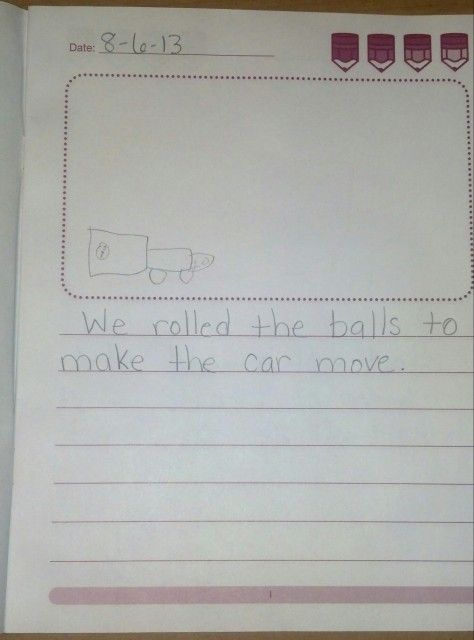 Date: 8-6-13
We rolled the balls to
make the car move.
1